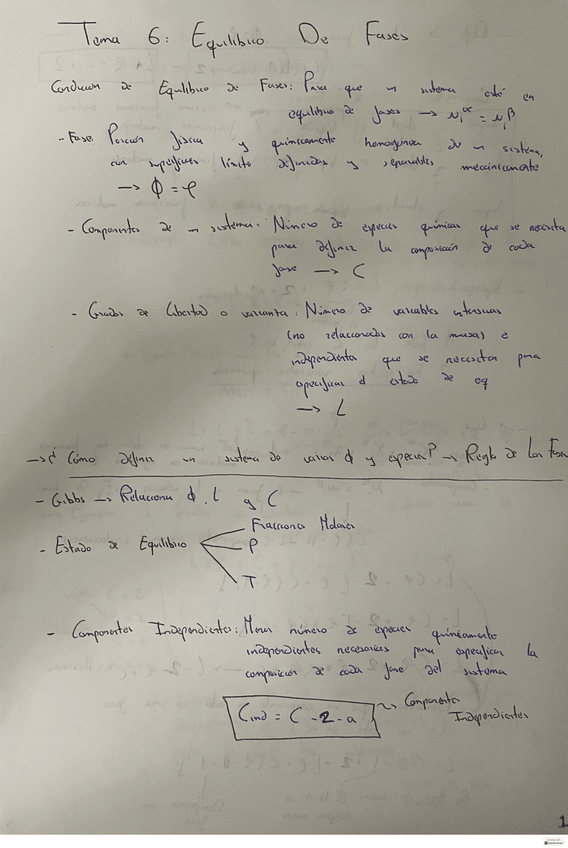 Tema 6: Equilibrio De Fases
Condición de Equilibrio de Fases: Para que un sistema esté en
equilibrio de fases → μᵢ^α = μᵢ^β
- Fase: Porción física y químicamente homogénea de un sistema,
con superficies límite definidas y separables mecánicamente
→ ϕ = φ
- Componentes de un sistema: Número de especies químicas que se necesita
para definir la composición de cada
fase → C
- Grados de libertad o varianza: Número de variables intensivas
(no relacionadas con la masa) e
independientes que se necesitan para
especificar el estado de eq
→ L
→ ¿Cómo definir un sistema de varias ϕ y especies? → Regla de Las Fases
- Gibbs → Relaciona ϕ, L y C
- Estado de Equilibrio
Fracciones Molares
P
T
- Componentes Independientes: Menor número de especies químicamente
independientes necesarias para especificar la
composición de cada fase del sistema
Cind = C - 2 - a
Componentes
Independientes
1